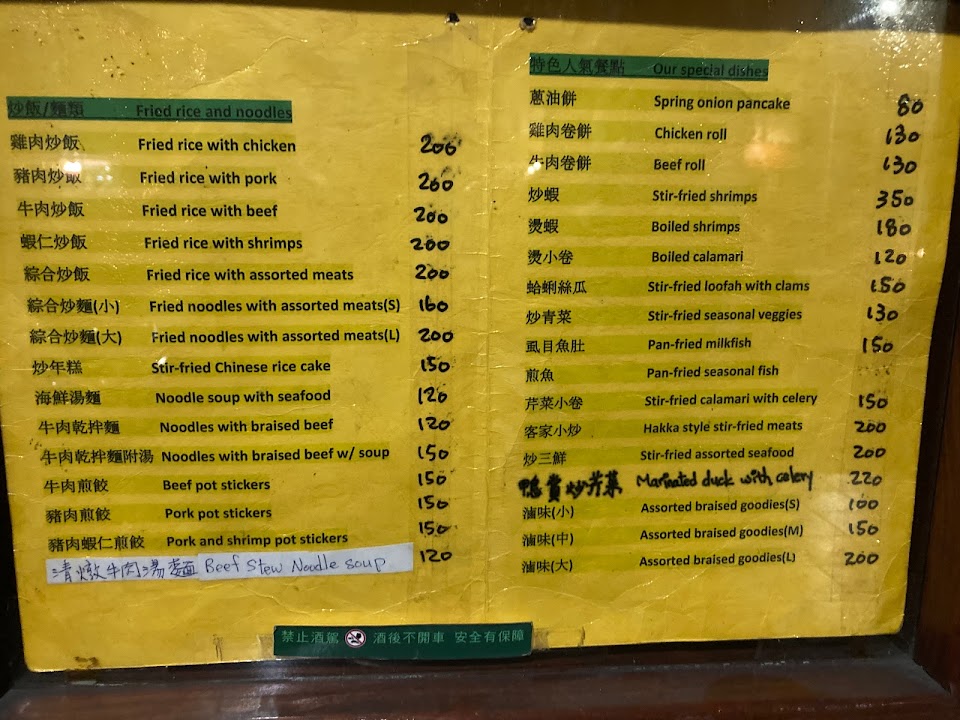 炒飯/麵類 Fried rice and noodles
雞肉炒飯 Fried rice with chicken 200
豬肉炒飯 Fried rice with pork 200
牛肉炒飯 Fried rice with beef 200
蝦仁炒飯 Fried rice with shrimps 200
綜合炒飯 Fried rice with assorted meats 200
綜合炒麵(小) Fried noodles with assorted meats(S) 160
綜合炒麵(大) Fried noodles with assorted meats(L) 200
炒年糕 Stir-fried Chinese rice cake 150
海鮮湯麵 Noodle soup with seafood 120
牛肉乾拌麵 Noodles with braised beef 120
牛肉乾拌麵附湯 Noodles with braised beef w/ soup 150
牛肉煎餃 Beef pot stickers 150
豬肉煎餃 Pork pot stickers 150
豬肉蝦仁煎餃 Pork and shrimp pot stickers 150
清燉牛肉湯麵 Beef Stew Noodle soup 120
特色人氣餐點 Our special dishes
蔥油餅 Spring onion pancake 80
雞肉卷餅 Chicken roll 130
牛肉卷餅 Beef roll 130
炒蝦 Stir-fried shrimps 350
燙蝦 Boiled shrimps 180
燙小卷 Boiled calamari 120
蛤蜊絲瓜 Stir-fried loofah with clams 150
炒青菜 Stir-fried seasonal veggies 130
虱目魚肚 Pan-fried milkfish 150
煎魚 Pan-fried seasonal fish
芹菜小卷 Stir-fried calamari with celery 150
客家小炒 Hakka style stir-fried meats 200
炒三鮮 Stir-fried assorted seafood 200
鴨賞炒芹菜 Marinated duck with celery 220
滷味(小) Assorted braised goodies(S) 100
滷味(中) Assorted braised goodies(M) 150
滷味(大) Assorted braised goodies(L) 200
禁止酒駕 酒後不開車 安全有保障